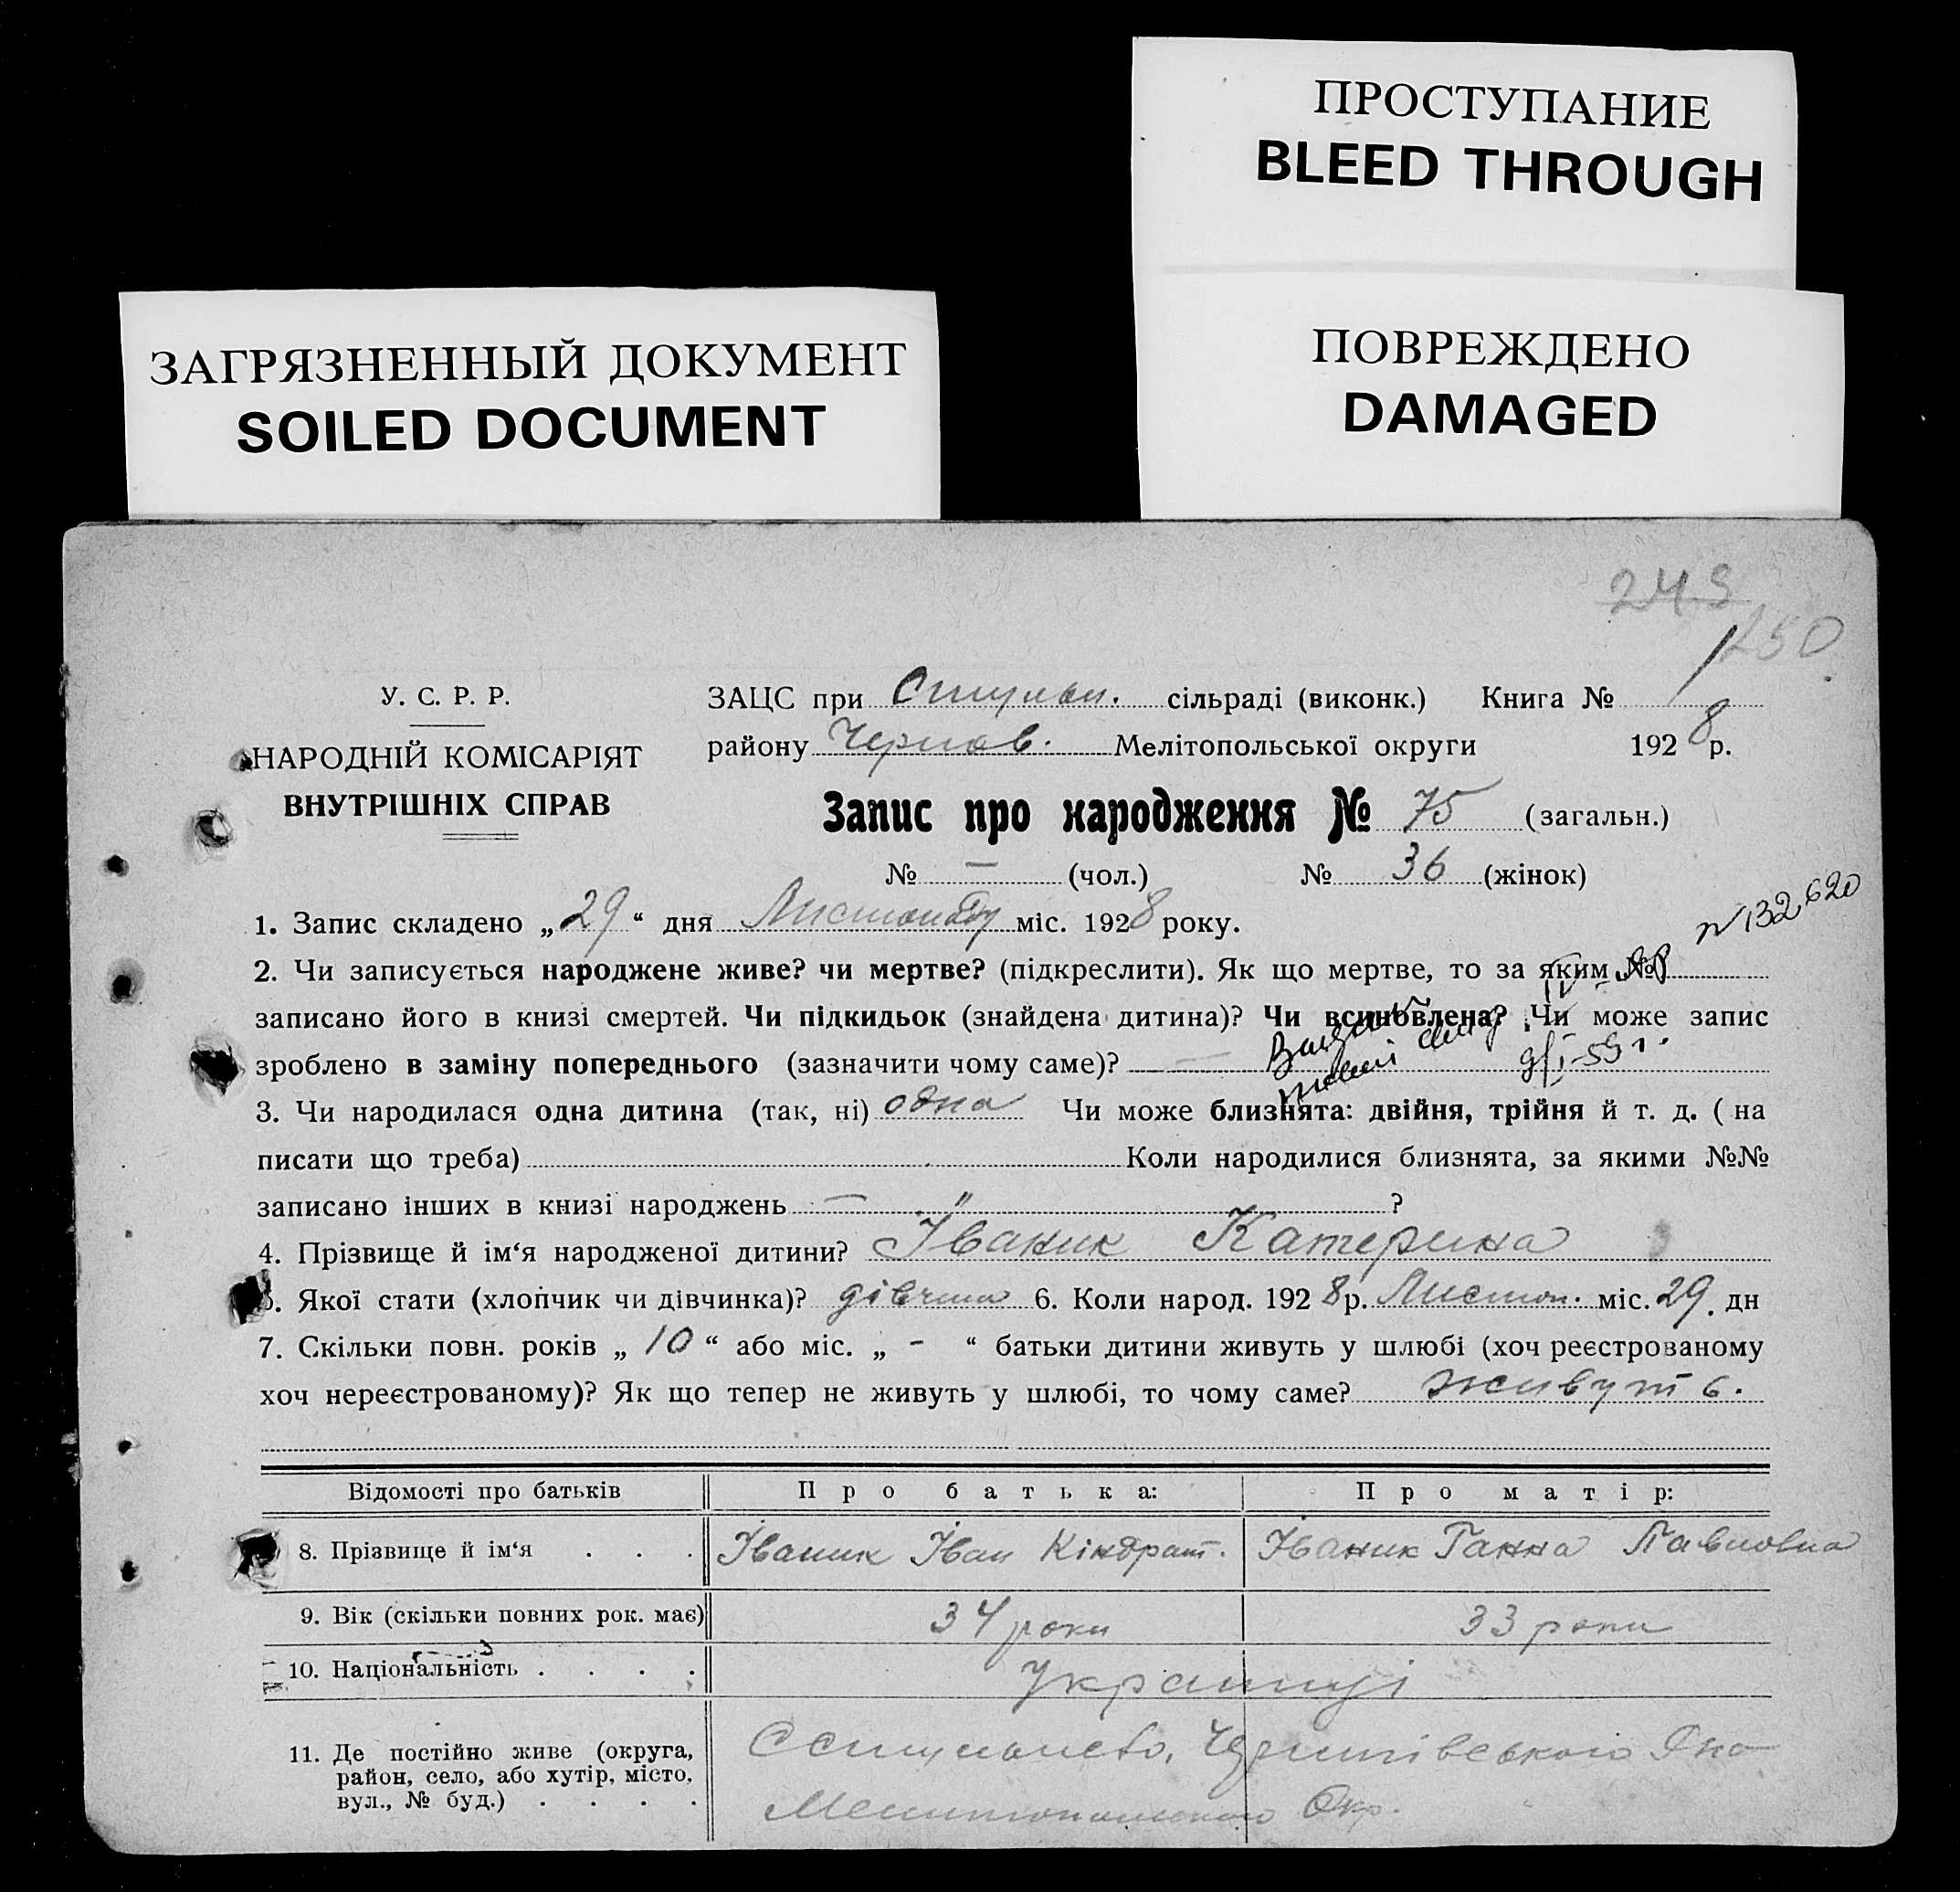 ПРОСТУПАНИЕ
BLEED THROUGH
ЗАГРЯЗНЕННЫЙ ДОКУМЕНТ
SOILED DOCUMENT
ПОВРЕЖДЕНО
DAMAGED
249
250
У. С. Р. Р.
НАРОДНІЙ КОМІСАРІЯТ
ВНУТРІШНІХ СПРАВ
ЗАЦС при сільраді (виконк.) Книга № 1
району Мелітопольської округи 1928 р.
Запис про народження № 75 (загальн.)
№ — (чол.) № 36 (жінок)
1. Запис складено „29“ дня Листопаду міс. 1928 року.
2. Чи записується народжене живе? чи мертве? (підкреслити). Як що мертве, то за яким №
записано його в книзі смертей. Чи підкидьок (знайдена дитина)? Чи всиновлена? Чи може запис
зроблено в заміну попереднього (зазначити чому саме)? —
3. Чи народилася одна дитина (так, ні) одна Чи може близнята: двійня, трійня й т. д. ( на
писати що треба) Коли народилися близнята, за якими №№
записано інших в книзі народжень — " ?
4. Прізвище й ім‘я народженої дитини? Іваник Катерина
5. Якої стати (хлопчик чи дівчинка)? дівчина 6. Коли народ. 1928 р. Листоп. міс. 29. дн
7. Скільки повн. років „ 10 “ або міс. „ - “ батьки дитини живуть у шлюбі (хоч реєстрованому
хоч нереєстрованому)? Як що тепер не живуть у шлюбі, то чому саме? живуть.
Відомості про батьків Про батька: Про матір:
8. Прізвище й ім‘я . . . Іваник Іван Кіндрат. Іваник Ганна Павловна
9. Вік (скільки повних рок. має) 34 роки 33 роки
10. Національність . . . . Українці
11. Де постійно живе (округа,
район, село, або хутір, місто,
вул., № буд.) . . . .
Мелитопольського Окр.